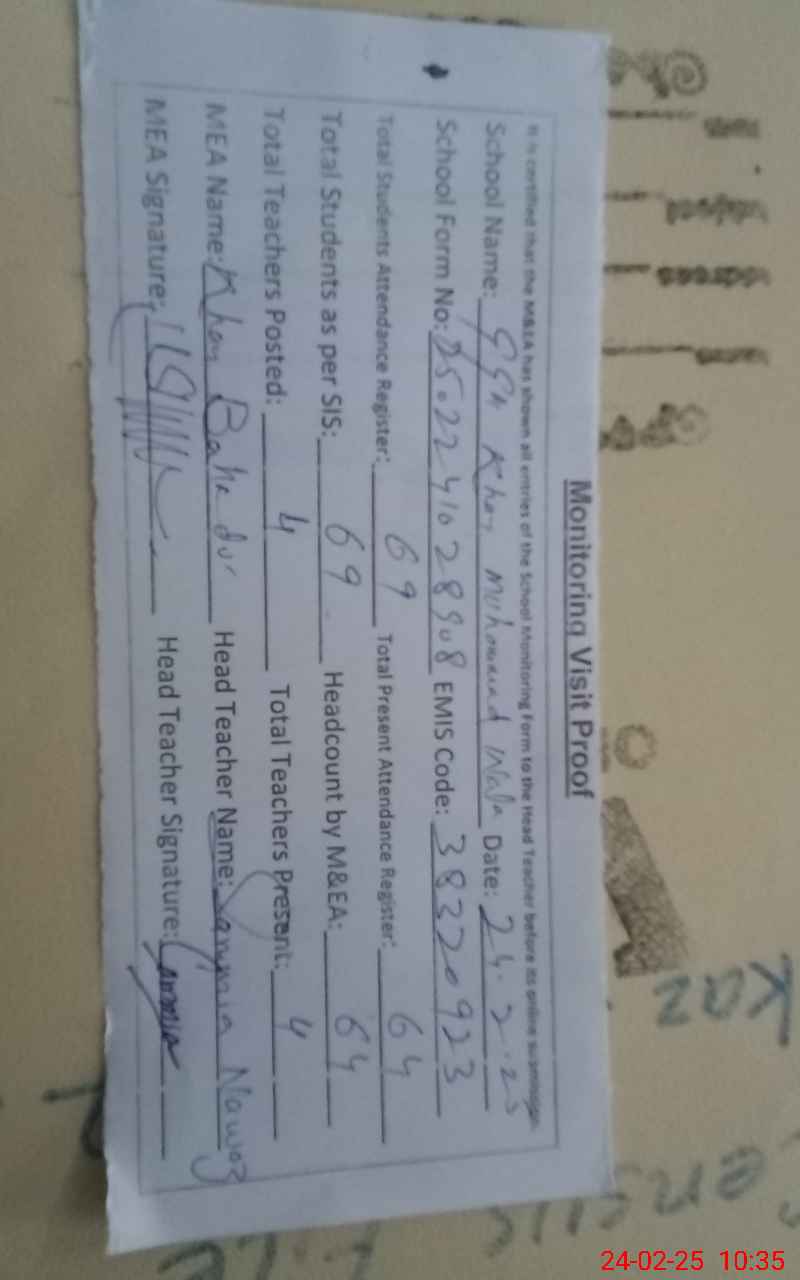 Monitoring Visit Proof
It is certified that the M&EA has shown all entries of the School Monitoring Form to the Head Teacher before its online submission.
School Name: GGPS Khan Muhammad Wala Date: 24.2.25
School Form No: 2502241028908 EMIS Code: 38320923
Total Students Attendance Register: 69 Total Present Attendance Register: 64
Total Students as per SIS: 69 Headcount by M&EA: 64
Total Teachers Posted: 4 Total Teachers Present: 4
MEA Name: Khan Bahadur Head Teacher Name: Nawaz
MEA Signature: Head Teacher Signature:
Kaz
24-02-25 10:35